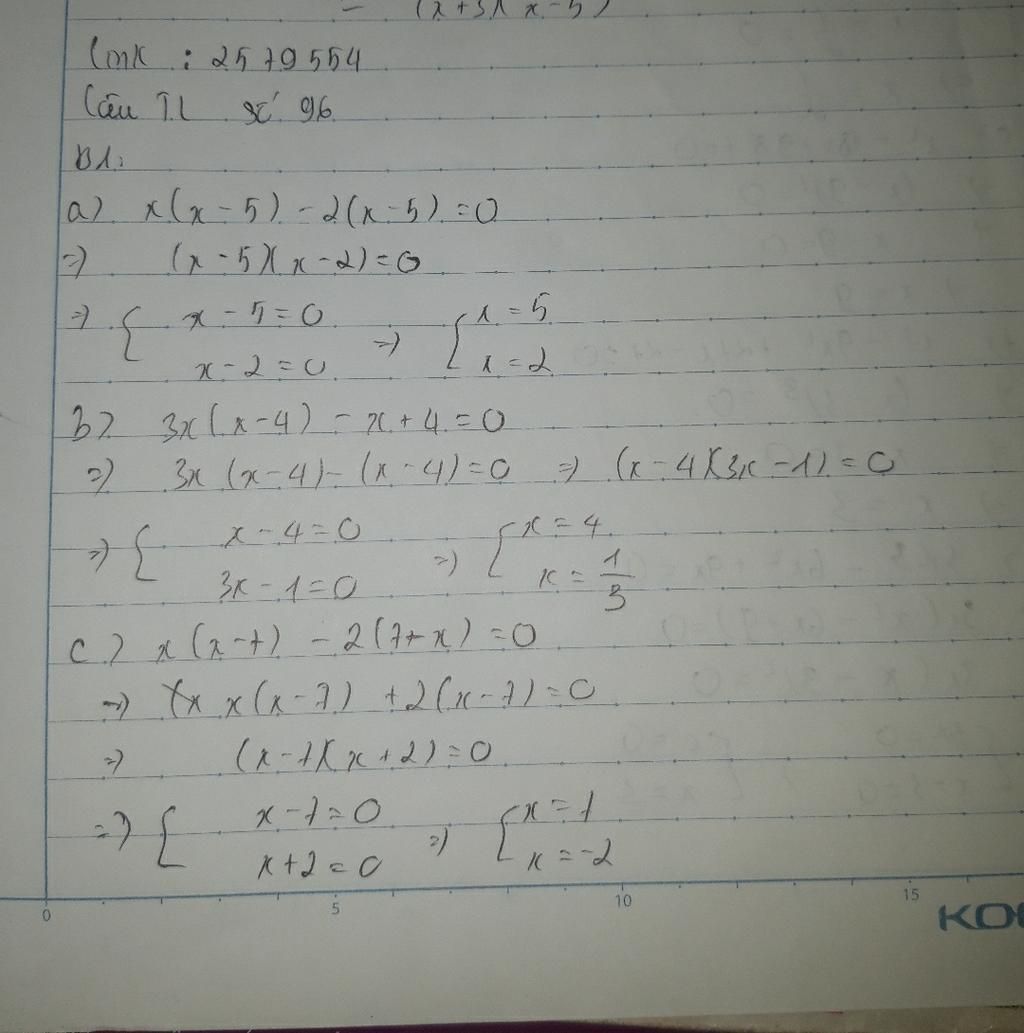 = (x+3)(x-5)
Link : 2579554
Câu TL số 96
B1:
a) x(x-5) - 2(x-5) = 0
=> (x-5)(x-2) = 0
=> { x-5=0 => [ x=5
x-2=0 x=2
b) 3x(x-4) - x+4 = 0
=> 3x(x-4) - (x-4) = 0 => (x-4)(3x-1) = 0
=> { x-4=0 => [ x=4
3x-1=0 x=1/3
c) x(x-7) - 2(7-x) = 0
=> x(x-7) + 2(x-7) = 0
=> (x-7)(x+2) = 0
=> { x-7=0 => [ x=7
x+2=0 x=-2
0 5 10 15